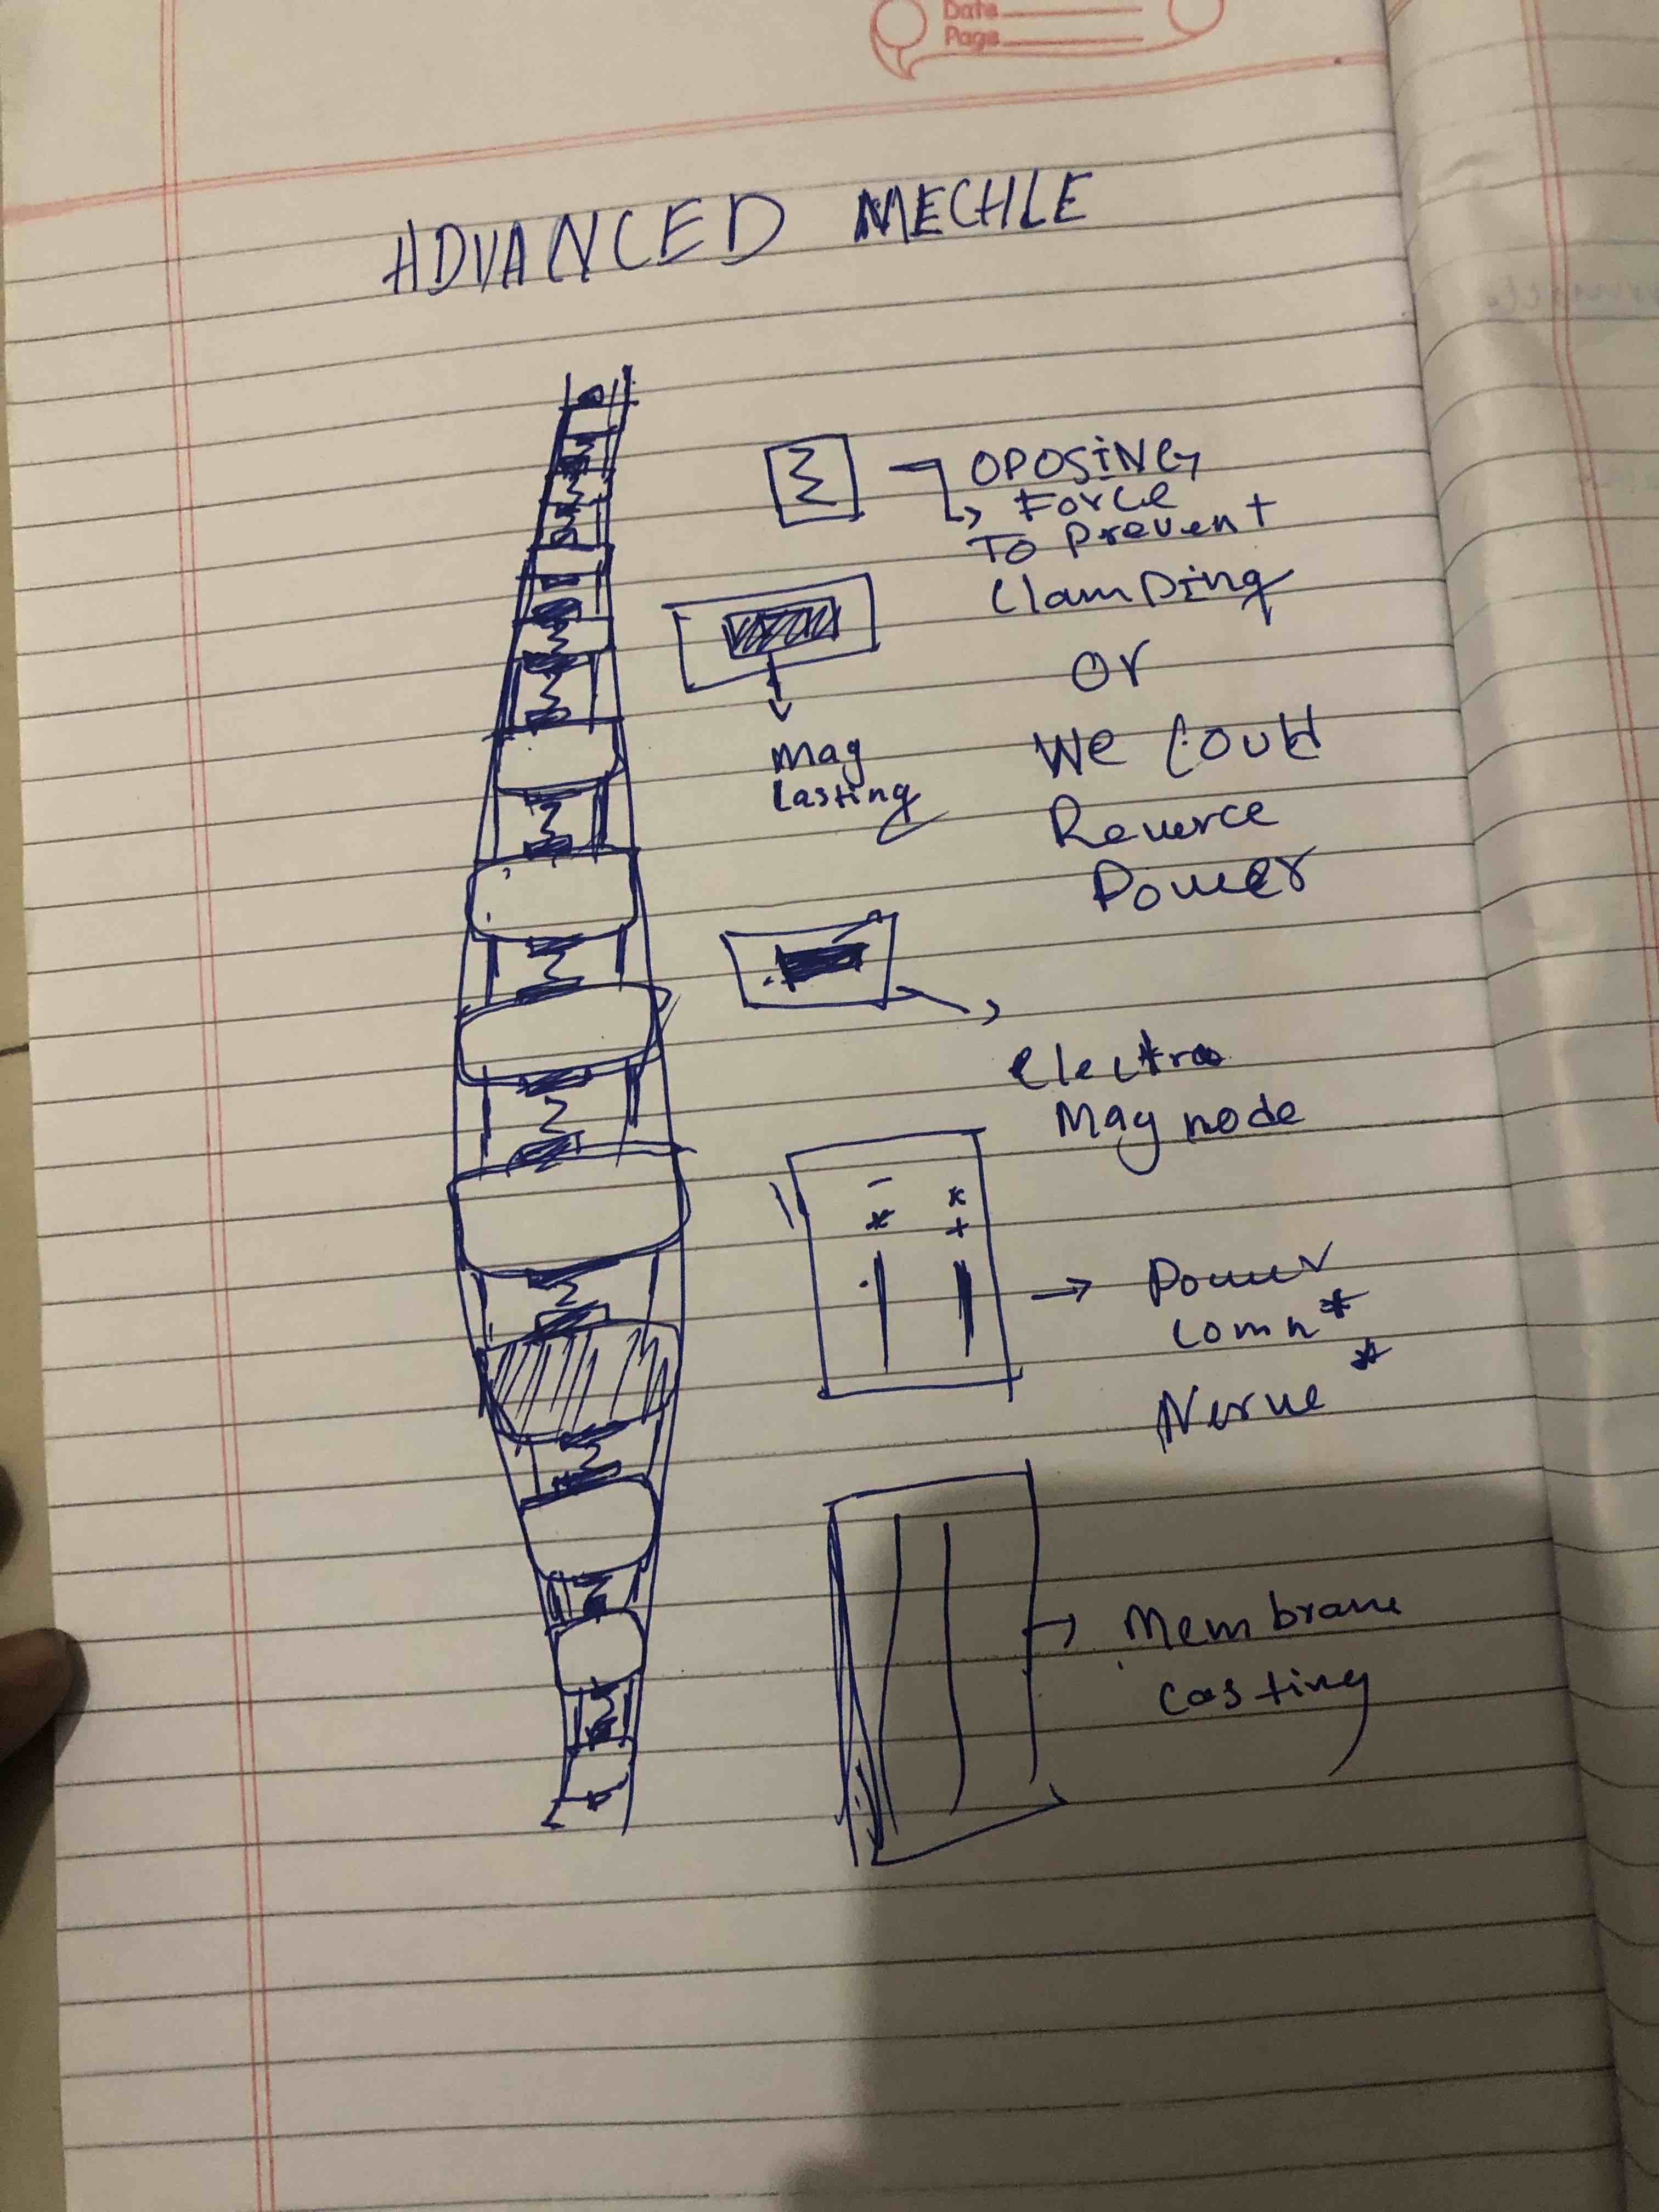 Date
Page
ADVANCED MECHLE
OPOSiNG
Force
To Prevent
Clamping
or
We Could
Reverce
Power
Mag
Casting
electro
Mag node
- *
* +
Power
Comn *
Nerve *
Membrane
Casting